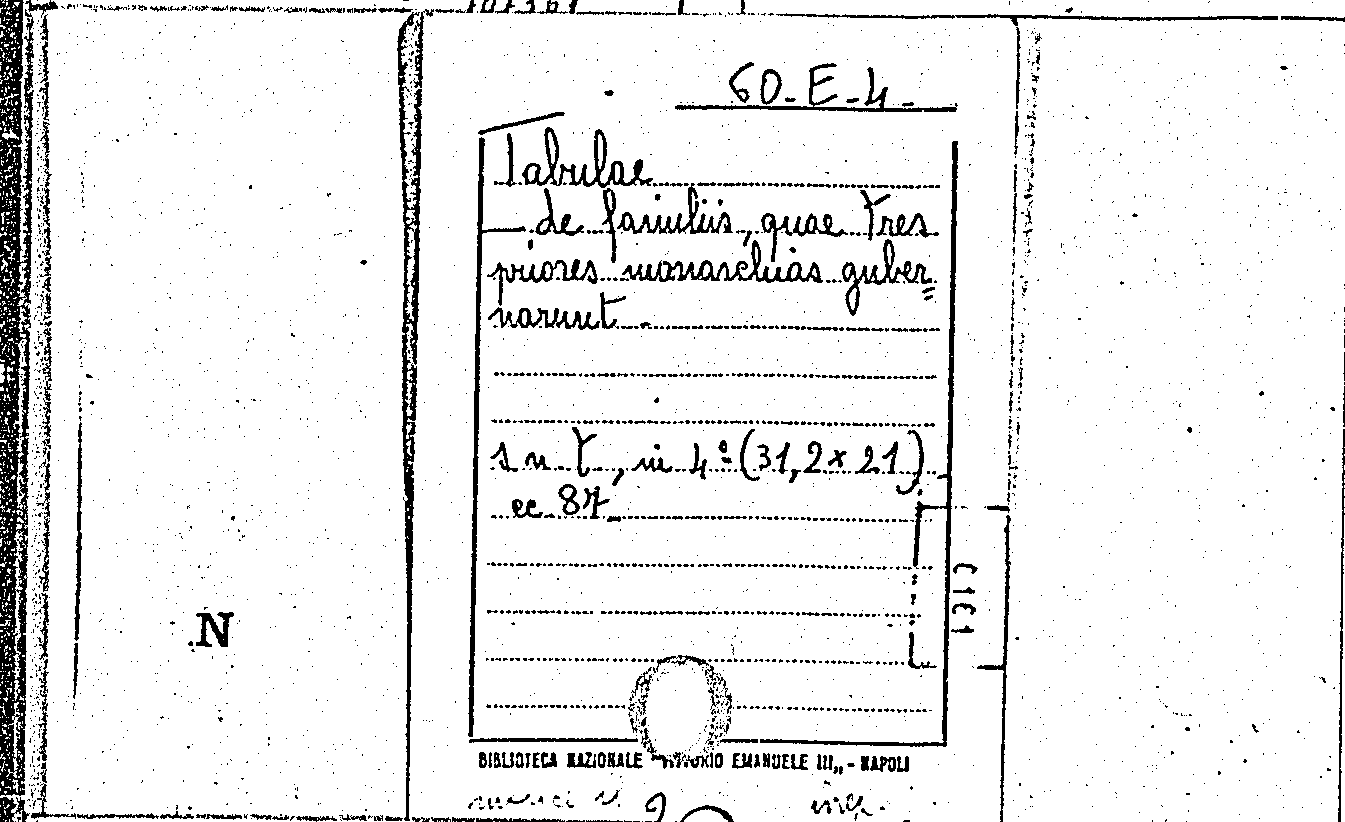 60-E-4-
Tabulae
— de familiis, quae tres
priores monarchias guber=
narunt.
s n t, in 4º (31,2 x 21)
cc 87
N
BIBLIOTECA NAZIONALE "VITTORIO EMANUELE III„ - NAPOLI